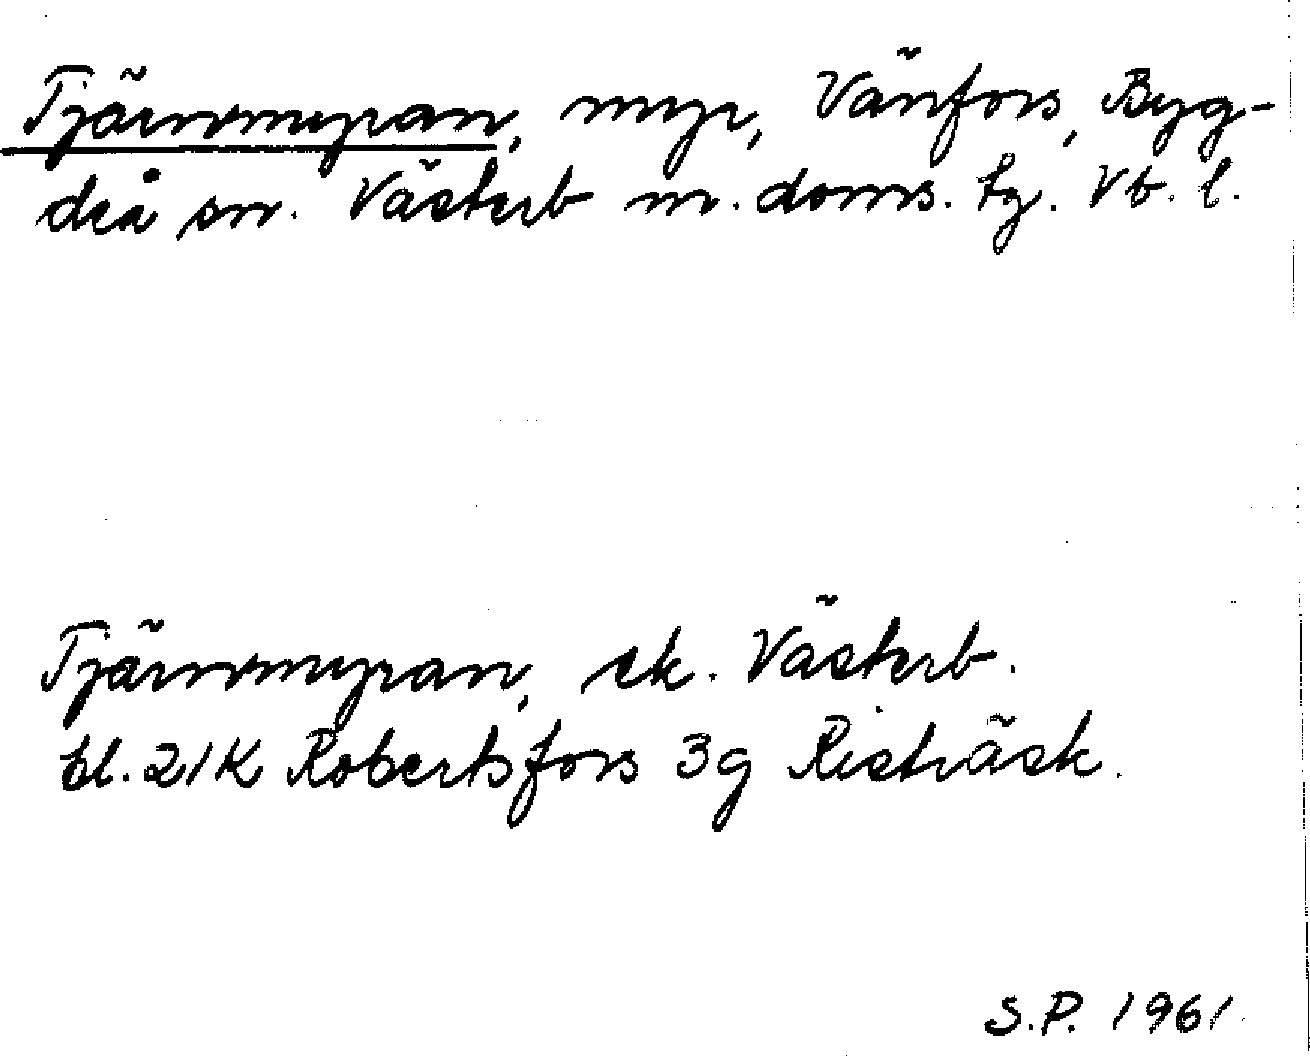 Tjärnmyran, myr, Vänfors, Byg-
deå sn. Västerb m. doms. tg. Vb. l.
Tjärnmyran, ek. Västerb.
bl. 21K Robertsfors 3g Risträsk.
S.P. 1961